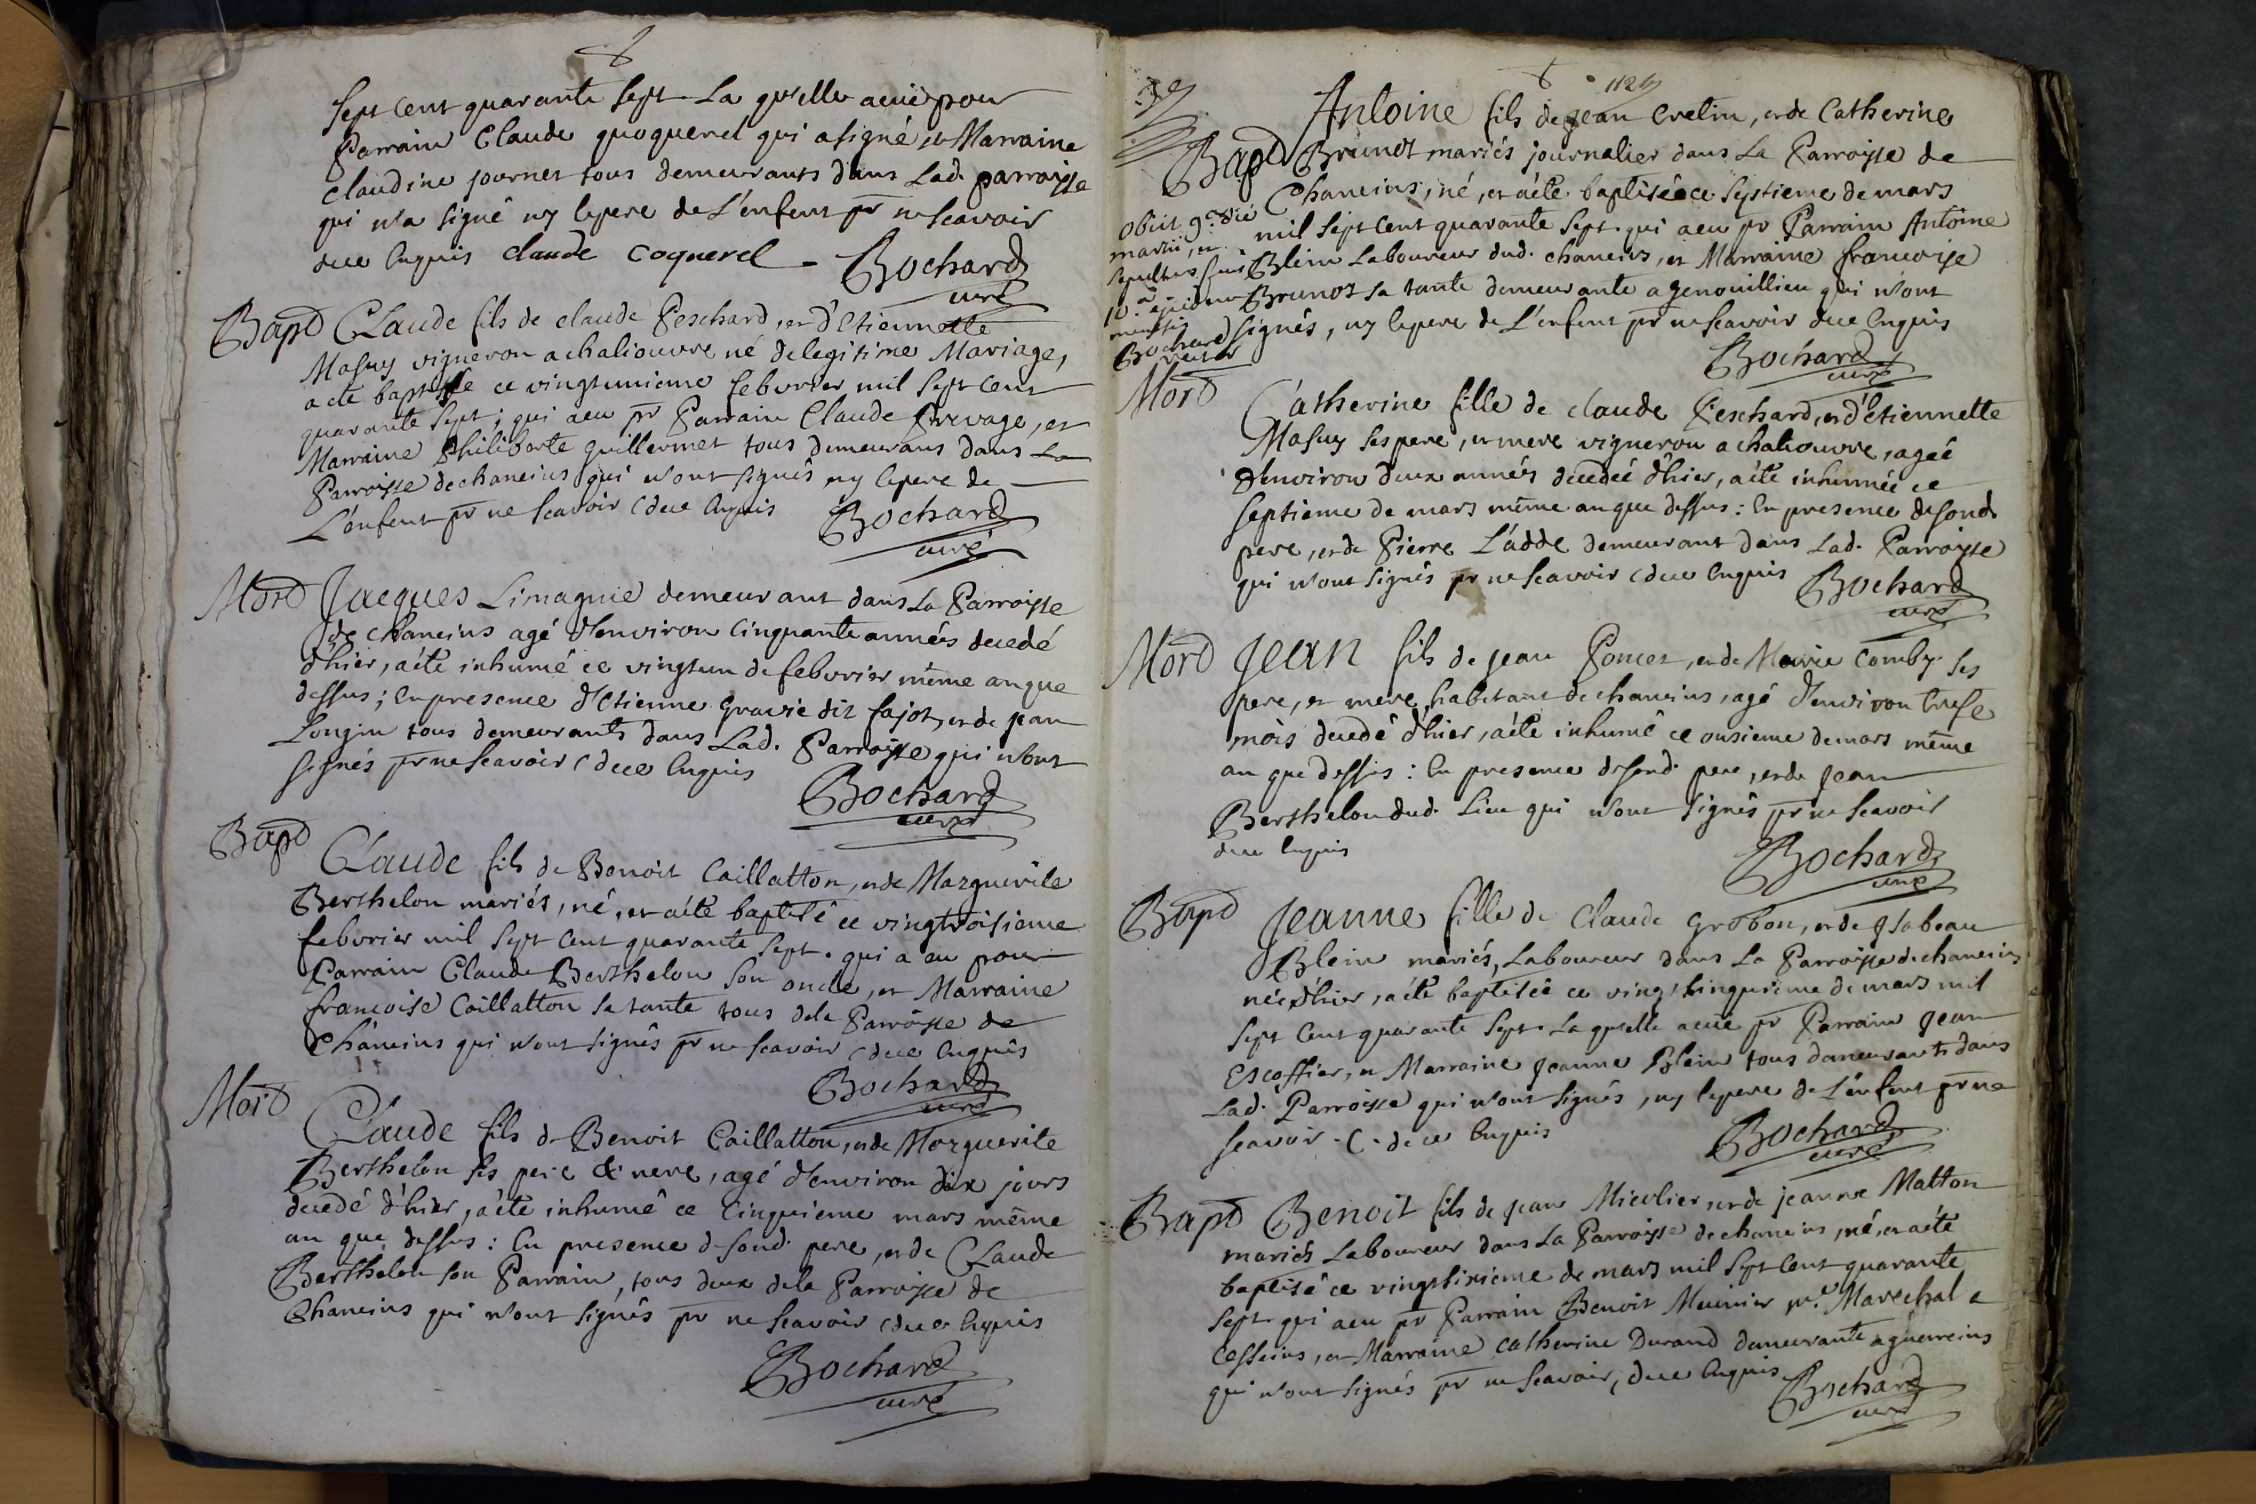 sept cent quarante sept. La qu'elle a eüe pour
Parrain Claude quoquerel qui a signé et Marraine
claudine journet tous demeurants dans lad. parroisse
qui n'a signé ny le pere de L'enfent pr ne scavoir
dece enquis claude coquerel - Bochard
curé
Bapt CLaude fils de claude Peschard, et d'Etiennette
Masuy vigneron a chaliouvre né delegitime Mariage,
a eté baptisé ce vingtunieme febvrier mil sept cent
quarante sept; qui a eu pr Parrain Claude Prevage, et
Marraine Philiberte guillermet tous demeurans dans La
Parroisse de chaneins qui n'ont signés ny le pere de
L'enfent pr ne scavoir c dece enquis Bochard
curé
Mort Jacques Limagnie demeurant dans La Parroisse
de chaneins agé d'environ cinquante années decedé
d'hier, a été inhumé ce vingtun de febvrier même an que
dessus; En presence d'Etienne gravié dit fajot, et de jean
Longin tous demeurants dans Lad. Parroisse qui n'ont
signés pr ne scavoir c dece enquis
Bochard
curé
Bapt Claude fils de Benoit Caillatton, et de Marguerite
Berthelon mariés, né, et a été baptisé ce vingttroisieme
febvrier mil sept cent quarante sept. qui a eu pour
Parrain Claude Berthelon son oncle, et Marraine
francoise Caillatton sa tante tous dela Parroisse de
Chaneins qui n'ont signés pr ne scavoir c dece enquis
Bochard
curé
Mort Claude fils de Benoit Caillatton, et de Marguerite
Berthelon ses pere & mere, agé d'environ dix jours
decedé d'hier, a été inhumé ce cinquieme mars même
an que dessus: En presence de sond. pere, et de CLaude
Berthelon son Parrain, tous deux dela Parroisse de
Chaneins qui n'ont signés pr ne scavoir c dece enquis
Bochard
curé
112
Antoine fils de jean cretin, et de Catherine
Bapt Brunot mariés journalier dans La Parroisse de
Chaneins, né, et a été baptisé ce septieme de mars
mil sept cent quarante sept. qui a eu pr Parrain Antoine
Blein Laboureur dud. chaneins, et Marraine francoise
Brunot sa tante demeurante a genouillieu qui n'ont
signés, ny le pere de L'enfent pr ne scavoir dece enquis
Bochard
curé
obiit 9a die
martii, et
sepultus fuit
10a ejusdem
mensis
Bochard
Mort Catherine fille de claude Peschard, et d'etiennette
Masuy ses pere, et mere vigneron a chaliouvre, agée
d'environ deux années decedée d'hier, a été inhumée ce
septieme de mars même an que dessus: En presence de sond.
pere, et de Pierre L'adde demeurant dans Lad. Parroisse
qui n'ont signés pr ne scavoir c dece enquis Bochard
curé
Mort Jean fils de jean Poncet, et de Marie Comby ses
pere, et mere habitant de chaneins, agé d'environ trese
mois decedé d'hier, a été inhumé ce onsieme de mars même
an que dessus: En presence de sond. pere, et de jean
Berthelon dud. Lieu qui n'ont signés pr ne scavoir
dece enquis Bochard
curé
Bapt Jeanne fille de Claude grobon, et de Isabeau
Blein mariés, Laboureur dans La Parroisse de chaneins
née d'hier, a été baptisée ce vingtcinquieme de mars mil
sept cent quarante sept. La qu'elle a eüe pr Parrain jean
Escoffier, et Marraine Jeanne Blein tous demeurants dans
Lad. Parroisse qui n'ont signés, ny le pere de L'enfent pr ne
scavoir. C. dece enquis Bochard
curé
Bapt Benoit fils de jean Micolier, et de jeanne Matton
mariés Laboureur dans La Parroisse de chaneins, né, et a été
baptisé ce vingtsixieme de mars mil sept cent quarante
sept. qui a eu pr Parrain Benoit Meunier me. Marechal a
cesseins, et Marraine catherine Durand demeurante a guerreins
qui n'ont signés pr ne scavoir, dece enquis Bochard
curé